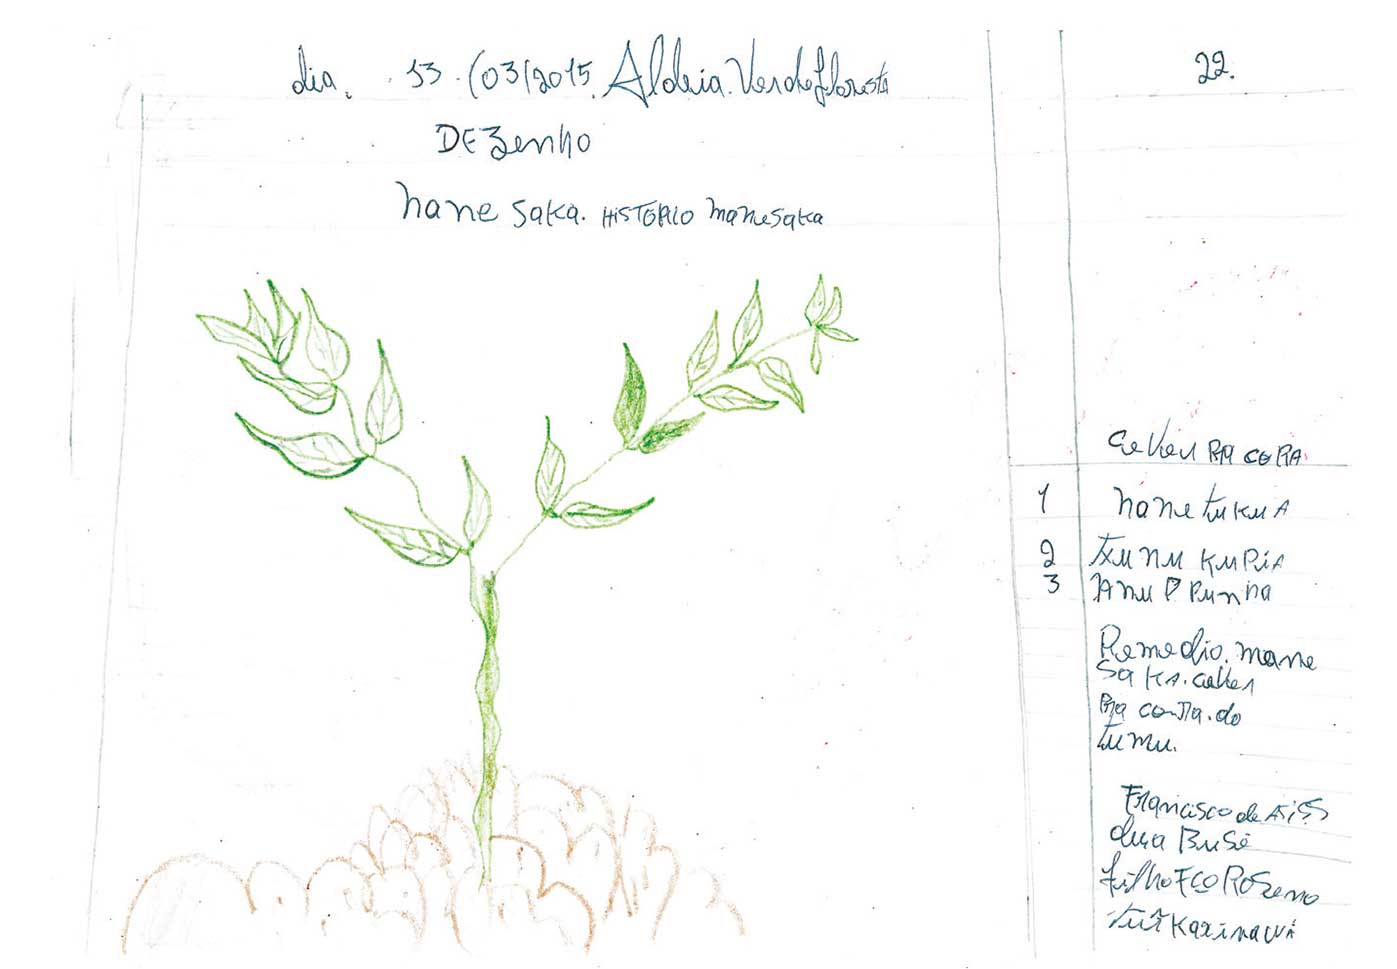 dia. 13.(03(2015. Aldeia. Verde floresta
22.
DEZenho
nane saka. HiSTORIO maneSaka
RA CORA
1 nane tuKuA
2 TXu nu KuPiA
3
Remedio. mane
Sa KA.
do
tumu.
Francisco de ASiS
dua BuSē
filho FCO ROSeno
KaxinawA